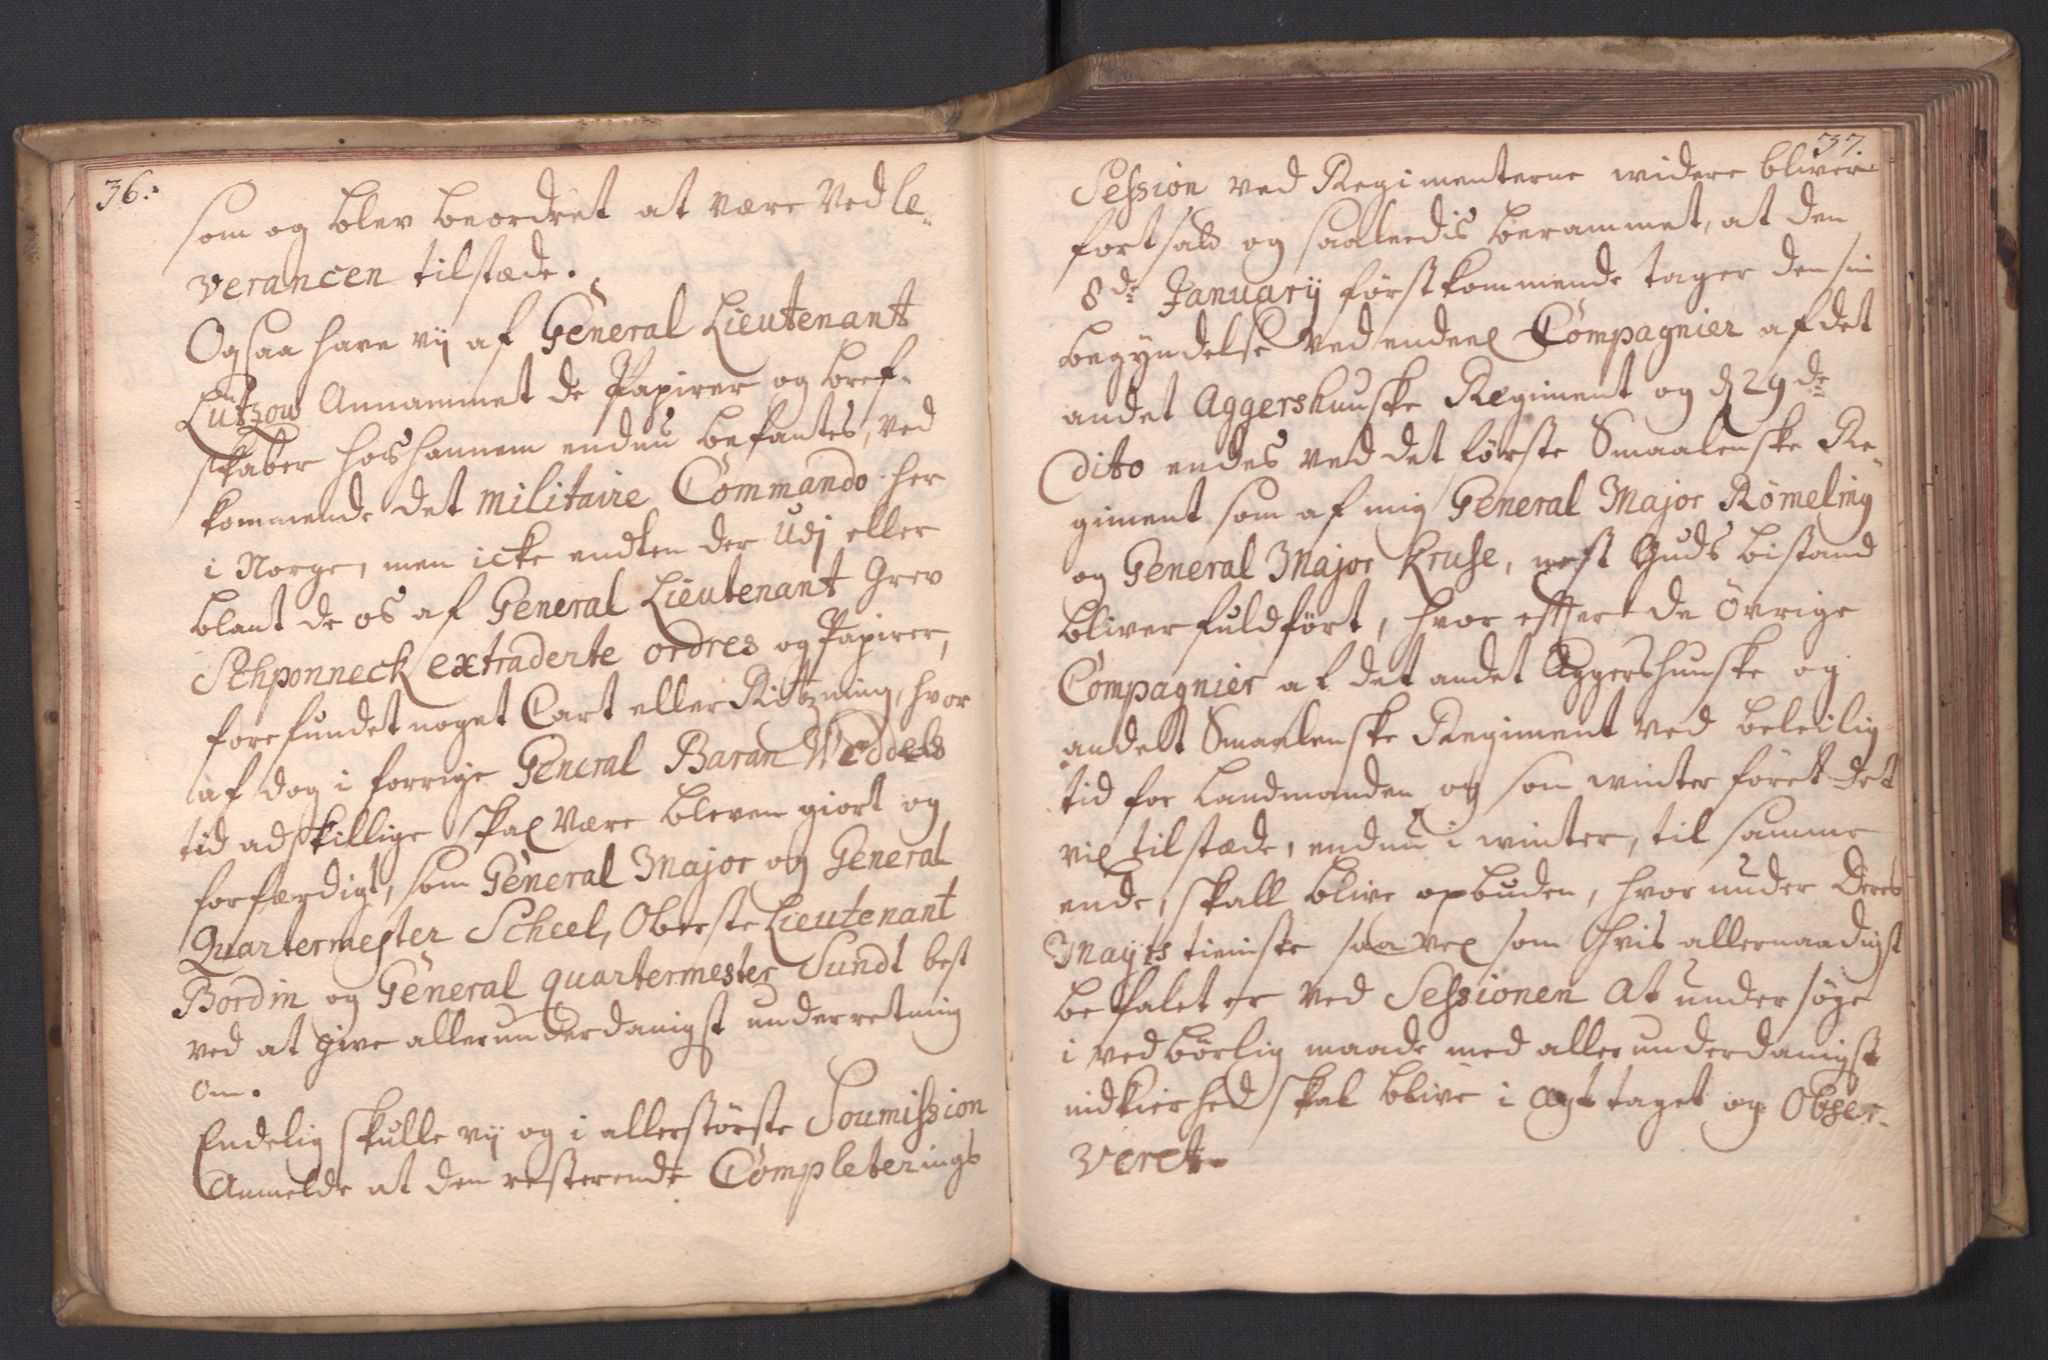 36:
som og blev beordret at være Ved le-
verancen tilstæde.
Ogsaa have vij af General Lieutenant
Lützow Annammet de Papirer og bref-
skaber hos hannem endnu befantes, ved
kommende det militaire Commando her
i Norge, men icke endten der udj eller
blant de os af General Lieutenant Grev
Schponneck extraderte ordres og Papirer,
forefundet noget Cart eller Ritzning, hvor
af dog i forrige General Baran Wedels
tid adskillige skal være bleven giort og
forferdigt, som General Major og General
Quartermester Scheel, Oberste Lieutenant
Bordin og General quartermester Sundt best
ved at give allerunderdanigst underretning
om.
Endelig skulle vij og i allerstörste Soumission
Anmelde at den resterende Completerings
37.
Session ved Regimenterne widere bliver
fortsatt og saaleedis berammet, at den
8de January förstkommende tager den sin
begyndelse ved endeel Compagnier af det
andet Aggershuuske Regiment og d 29de
dito endes ved det förste Smaalenske Re-
giment som af mig General Major Römeling
og General Major Kruse, nest Guds bistand
bliver fuldfört, hvor effter de övrige
Compagnier af det andet Aggershuuske og
andet Smaalenske Regiment ved beleilig
tid for Landmanden og som winter föret det
vil tilstæde, endnu i winter, til samme
ende, skall blive opbuden, hvor under Deres
Mayts tieniste saa vel som Hvis allernaadigst
befalet er ved Sessionen At undersöge
i vedbörlig maade med allerunderdanigst
nidkierhed skal blive i Agt taget og Obser-
veret.